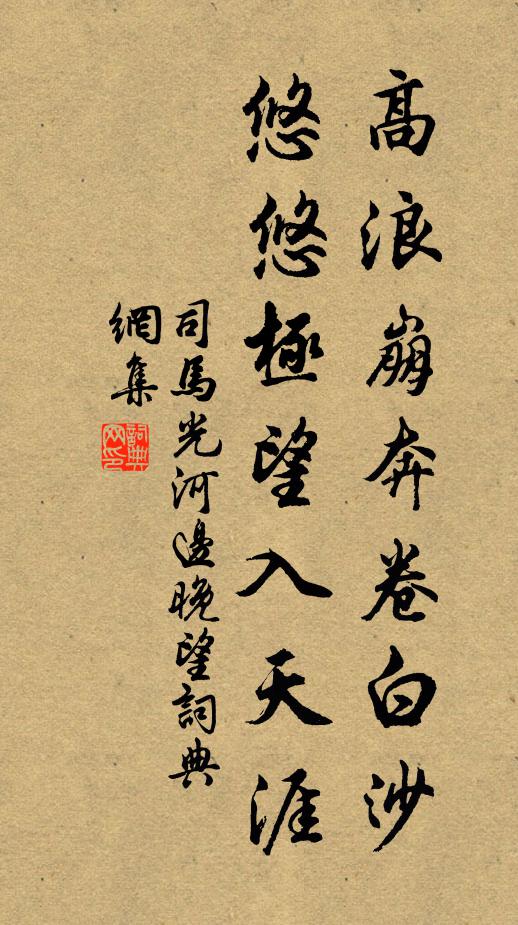 高浪崩奔卷白沙
悠悠極望入天涯
司馬光河邊晚望詞典
網集
詞典
网印